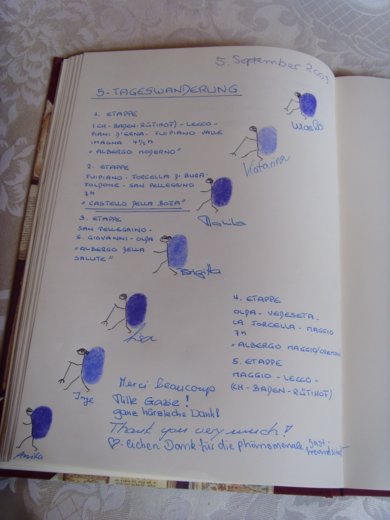 5. September 2003
5-TAGESWANDERUNG
1. ETAPPE
(CH-BADEN-RÜTIHOF) - LECCO -
PIANI D'ERNA - FUIPIANO VALLE
IMAGNA 4½ h
"ALBERGO MODERNO"
2. ETAPPE
FUIPIANO - FORCELLA DI BURA
- SAN PELLEGRINO
7h
"CASTELLO DELLA BOTA"
3. ETAPPE
SAN PELLEGRINO -
S. GIOVANNI - OLDA
"ALBERGO DELLA
SALUTE"
Katarina
Brigitta
Lisa
Inge
Anita
4. ETAPPE
OLDA - VEDESETA -
LA FORCELLA - MAGGIO
7h
"ALBERGO MAGGIO/CREMENO
5. ETAPPE
MAGGIO - LECCO -
(CH-BADEN-RÜTIHOF)
Merci beaucoup
Mille Grazie!
ganz härzleche Dank!
Thank you very much!
♡-lichen Dank für die phänomenale Gast-
freundschaft